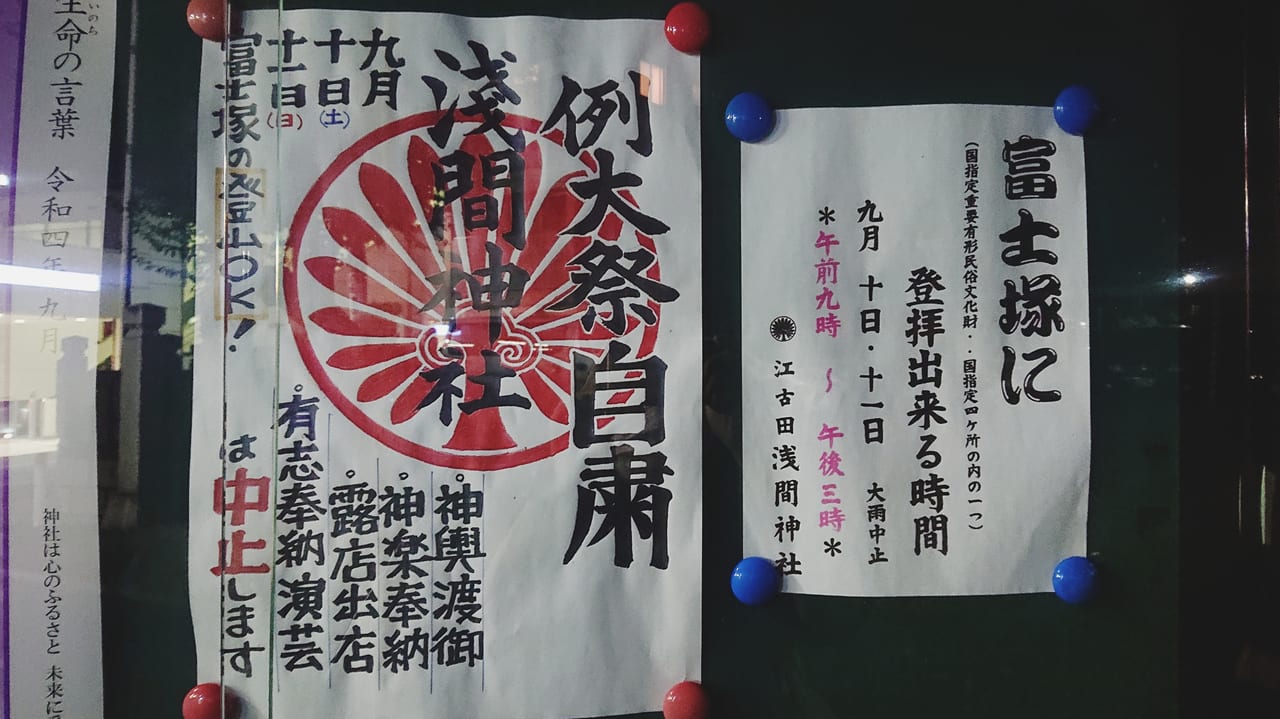 富士塚に
(国指定重要有形民俗文化財・・国指定四ケ所の内の一つ)
登拝出来る時間
九月 十日・十一日 大雨中止
＊午前九時 〜 午後三時＊
江古田浅間神社
例大祭自粛
淺間神社
九月
十日(土)
十一日(日)
富士塚の登山OK!
。神輿渡御
。神楽奉納
。露店出店
。有志奉納演芸
は中止します
生命の言葉 令和四年九月
いのち
神社は心のふるさと 未来に